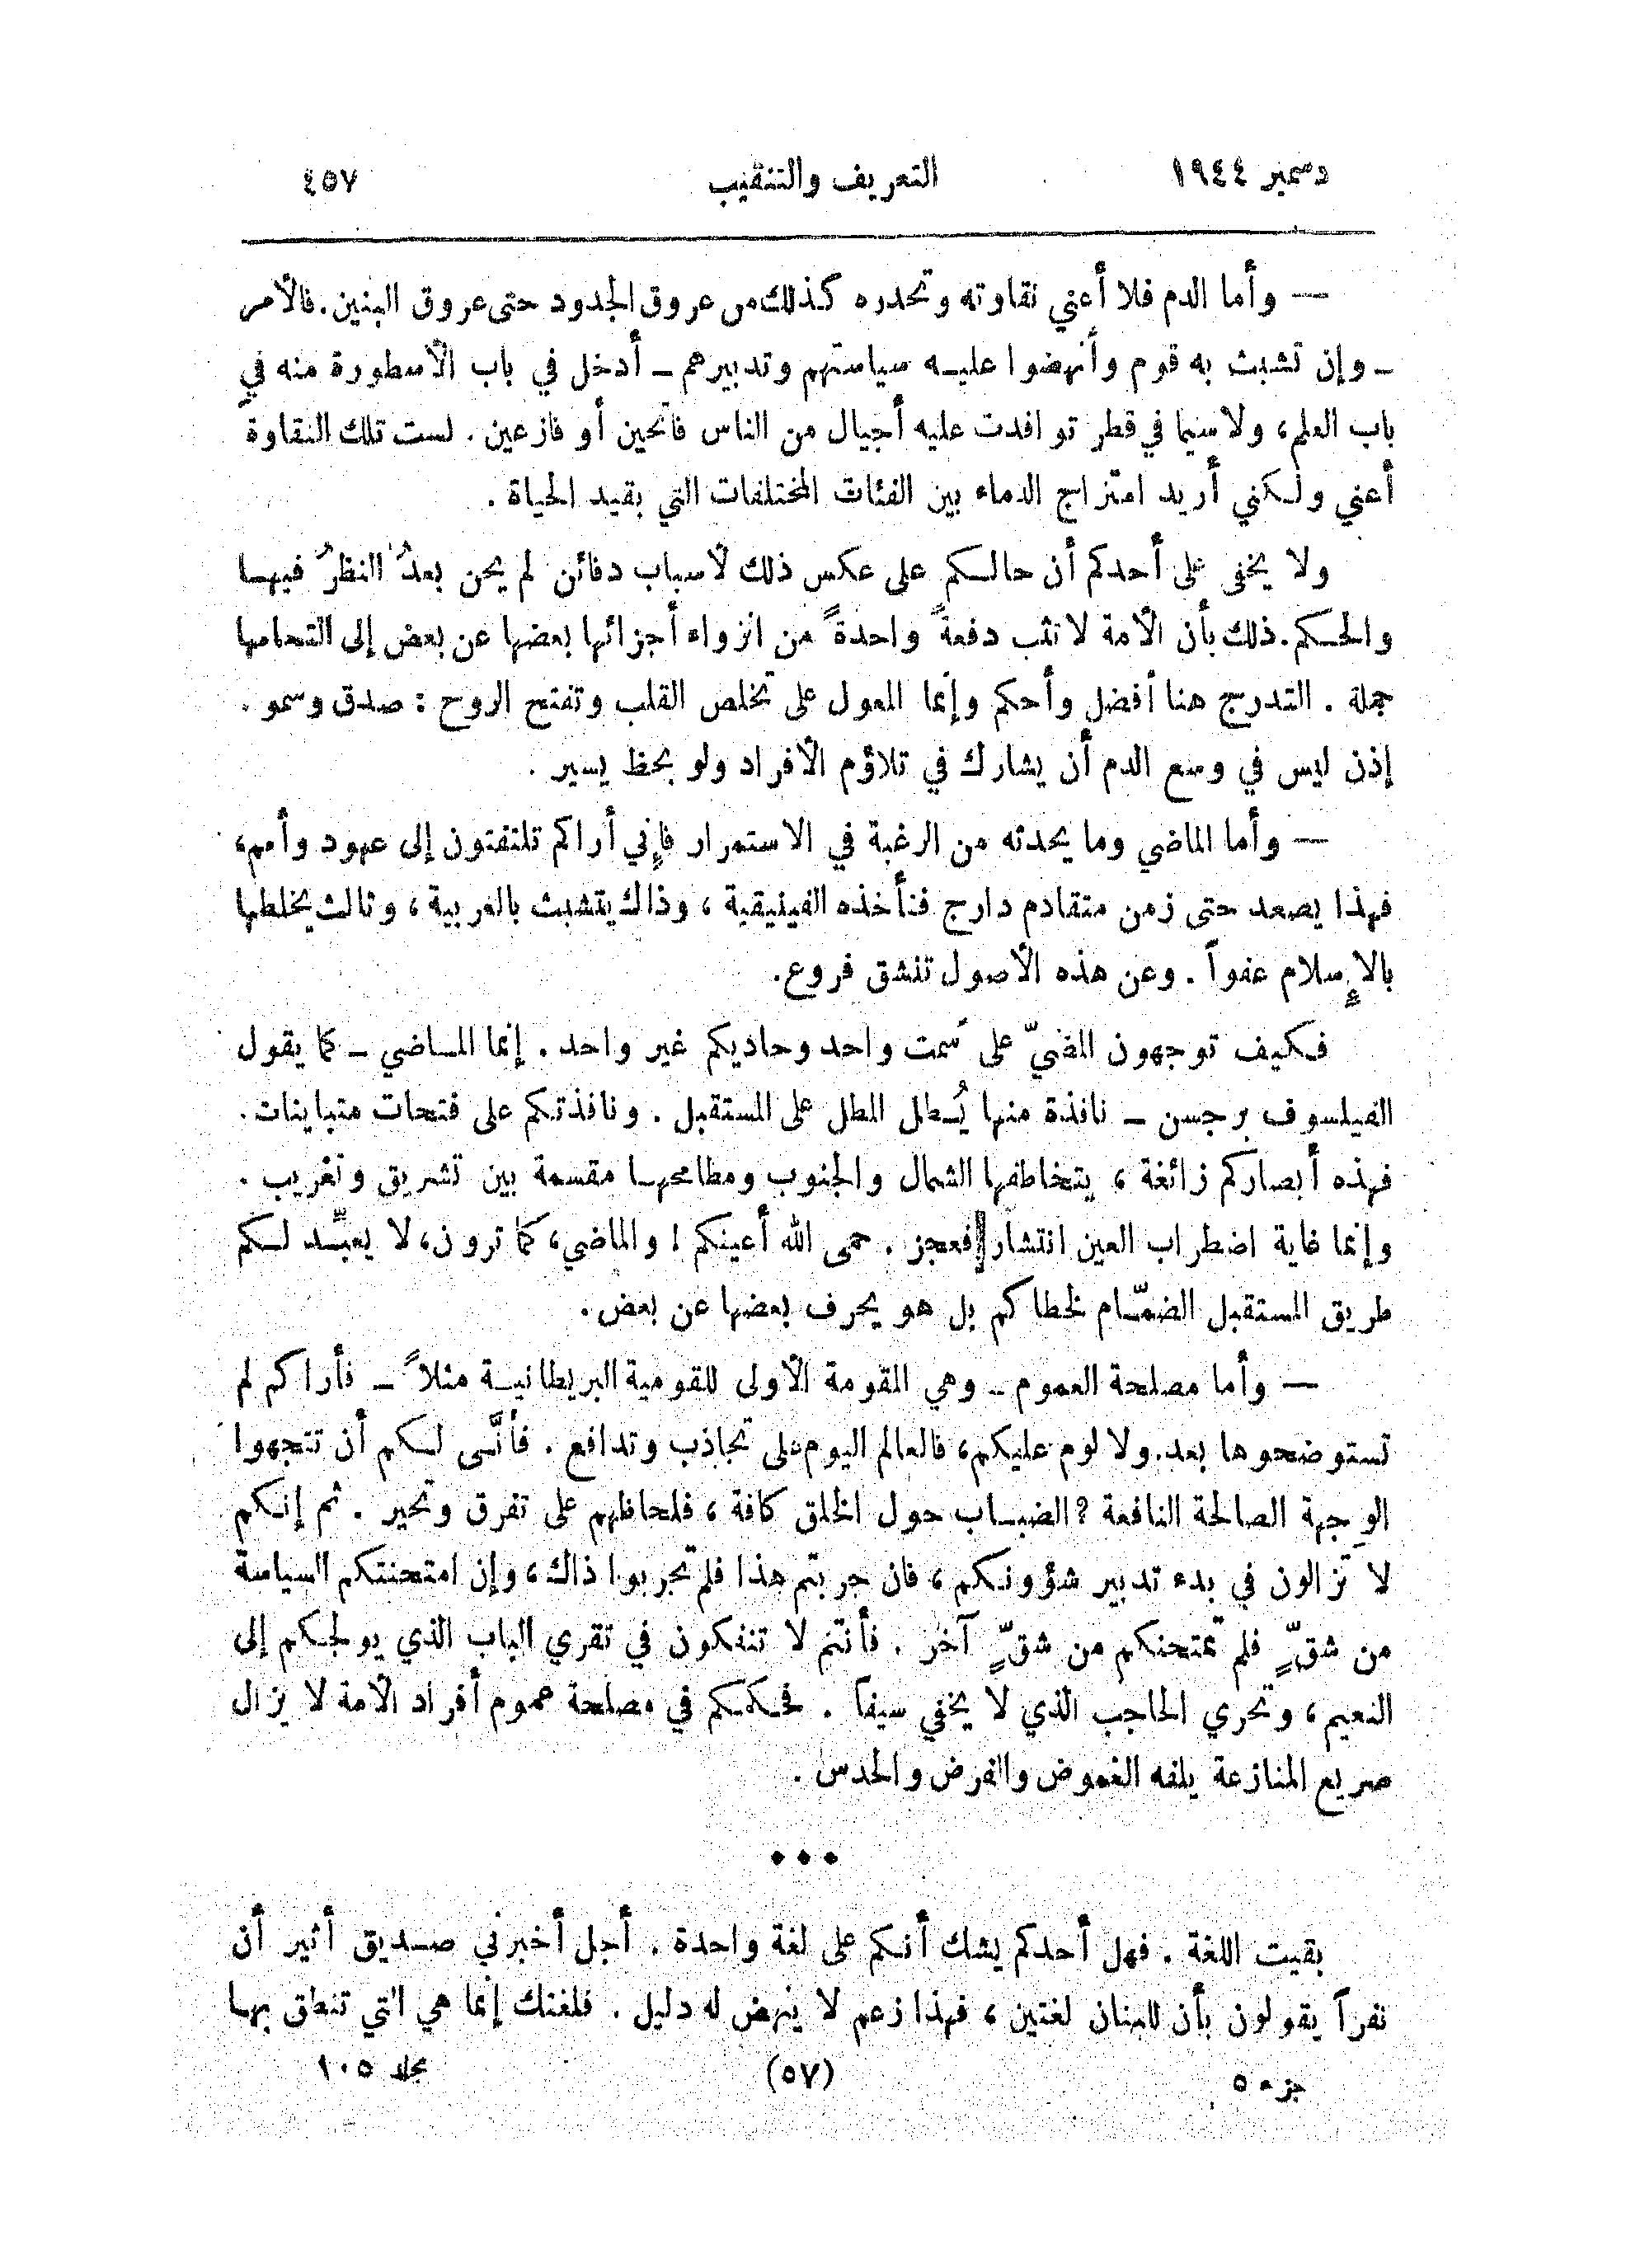 دسمبر ١٩٤٤ التعريف والتنقيب ٤٥٧
— وأما الدم فلا أعني نقاوته وتحدره كذلك من عروق الجدود حتى عروق البنين. فالأمر
ـ وإن تشبث به قوم وأنهضوا عليه سياستهم وتدبيرهم ـ أدخل في باب الأسطورة منه في
باب العلم، ولا سيما في قطر توافدت عليه أجيال من الناس فاتحين أو فازعين. لست تلك النقاوة
أعني ولكني أريد امتزاج الدماء بين الفئات المختلفات التي بقيد الحياة.
ولا يخفى على أحدكم أن حالكم على عكس ذلك لأسباب دفائن لم يحن بعدُ النظرُ فيها
والحكم. ذلك بأن الأمة لا تثب دفعةً واحدةً من انزواء أجزائها بعضها عن بعض إلى التحامها
جملة. التدرج هنا أفضل وأحكم وإنما المعول على تخلص القلب وتفتح الروح: صدق وسمو.
إذن ليس في وسع الدم أن يشارك في تلاؤم الأفراد ولو بحظ يسير.
— وأما الماضي وما يحدثه من الرغبة في الاستمرار فإني أراكم تلتفتون إلى عهود وأمم،
فهذا يصعد حتى زمن متقادم دارج فتأخذه الفينيقية، وذاك يتشبث بالعربية، وثالث يخلطها
بالإسلام عفواً. وعن هذه الأصول تنشق فروع.
فكيف توجهون المضيّ على سَمت واحد وحاديكم غير واحد. إنما الماضي ـ كما يقول
الفيلسوف برجسن ـ نافذة منها يُطل المطل على المستقبل. ونافذتكم على فتحات متباينات.
فهذه أبصاركم زائغة، يتخاطفها الشمال والجنوب ومطامحها مقسمة بين تشريق وتغريب.
وإنما غاية اضطراب العين انتشار فعجز. حمى الله أعينكم! والماضي، كما ترون، لا يعبِّد لكم
طريق المستقبل الضمّام لخطاكم بل هو يحرف بعضها عن بعض.
— وأما مصلحة العموم ـ وهي المقومة الأولى للقومية البريطانية مثلاً ـ فأراكم لم
تستوضحوها بعد. ولا لوم عليكم، فالعالم اليوم على تجاذب وتدافع. فأنَّى لكم أن تتجهوا
الوِجهة الصالحة النافعة؟ الضباب حول الخلق كافة، فلحاظهم على تفرق وتحير. ثم إنكم
لا تزالون في بدء تدبير شؤونكم، فان جربتم هذا فلم تجربوا ذاك، وإن امتحنتكم السياسة
من شقٍّ فلم تمتحنكم من شقٍّ آخر. فأنتم لا تنفكون في تقري الباب الذي يولجكم إلى
النعيم، وتحري الحاجب الذي لا يخفي سيفاً. فحكمكم في مصلحة عموم أفراد الأمة لا يزال
صريع المنازعة يلفه الغموض والفرض والحدس.
•••
بقيت اللغة. فهل أحدكم يشك أنكم على لغة واحدة. أجل أخبرني صديق أثير أن
نفراً يقولون بأن للبنان لغتين، فهذا زعم لا ينهض له دليل. فلغتك إنما هي التي تنطق بها
جزء ٥ (٥٧) مجلد ١٠٥